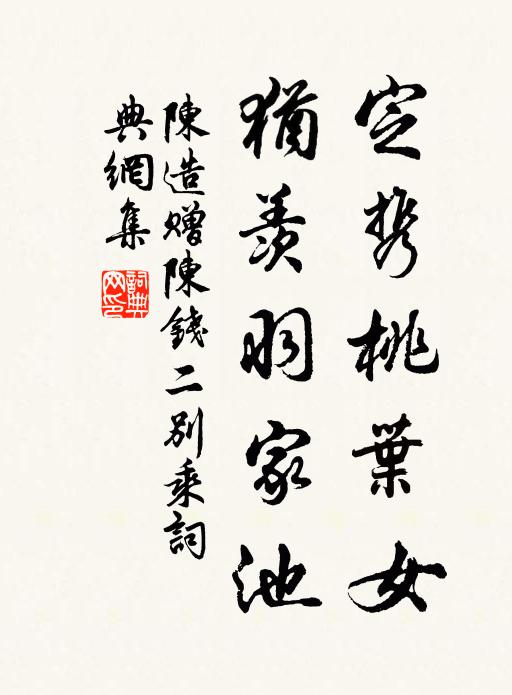 定携桃葉女
猶羨羽家池
陳造贈陳錢二别乘詞
典網集
詞典網印